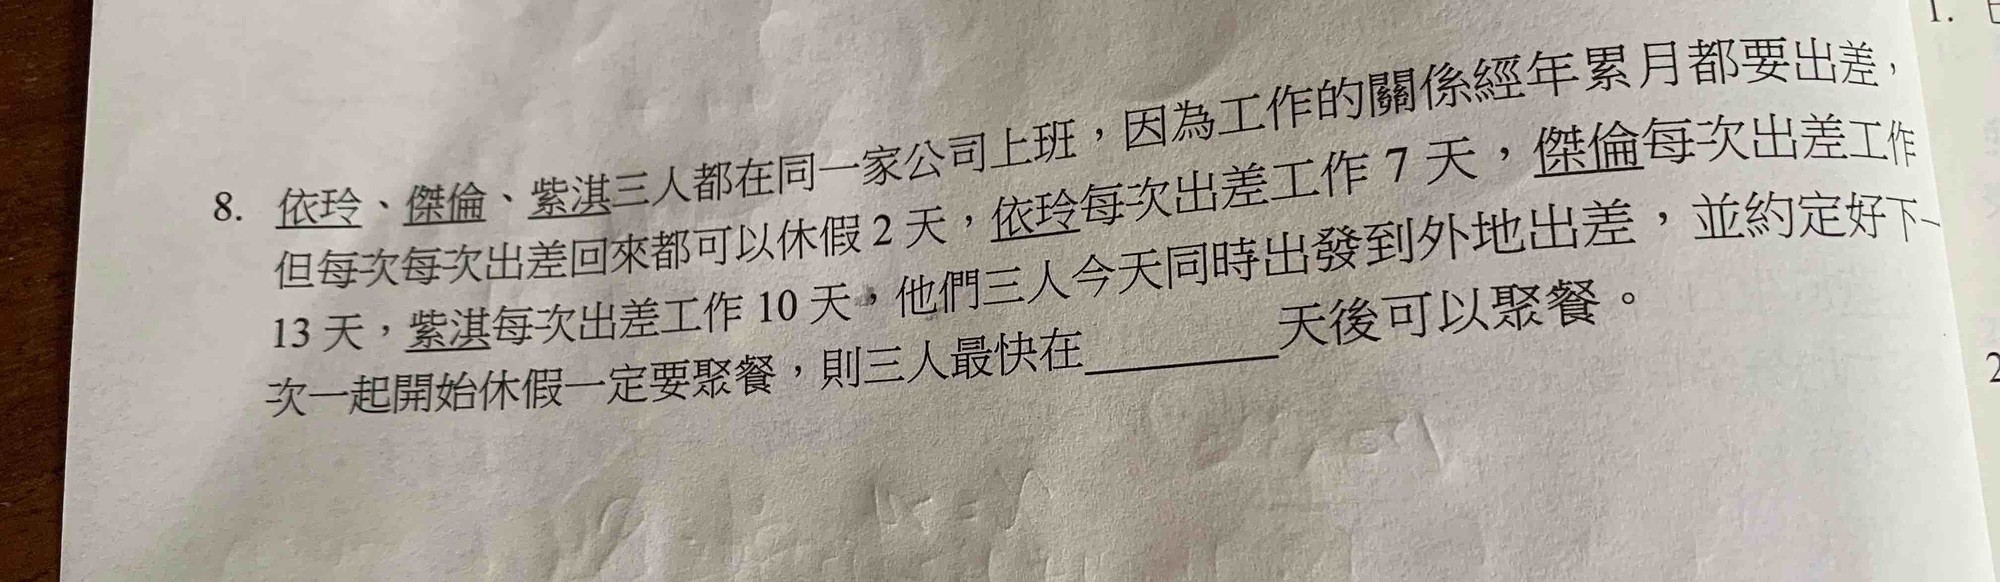 8. 依玲、傑倫、紫淇三人都在同一家公司上班，因為工作的關係經年累月都要出差，
但每次每次出差回來都可以休假 2 天，依玲每次出差工作 7 天，傑倫每次出差工作
13 天，紫淇每次出差工作 10 天，他們三人今天同時出發到外地出差，並約定好下一
次一起開始休假一定要聚餐，則三人最快在________天後可以聚餐。
1.
2